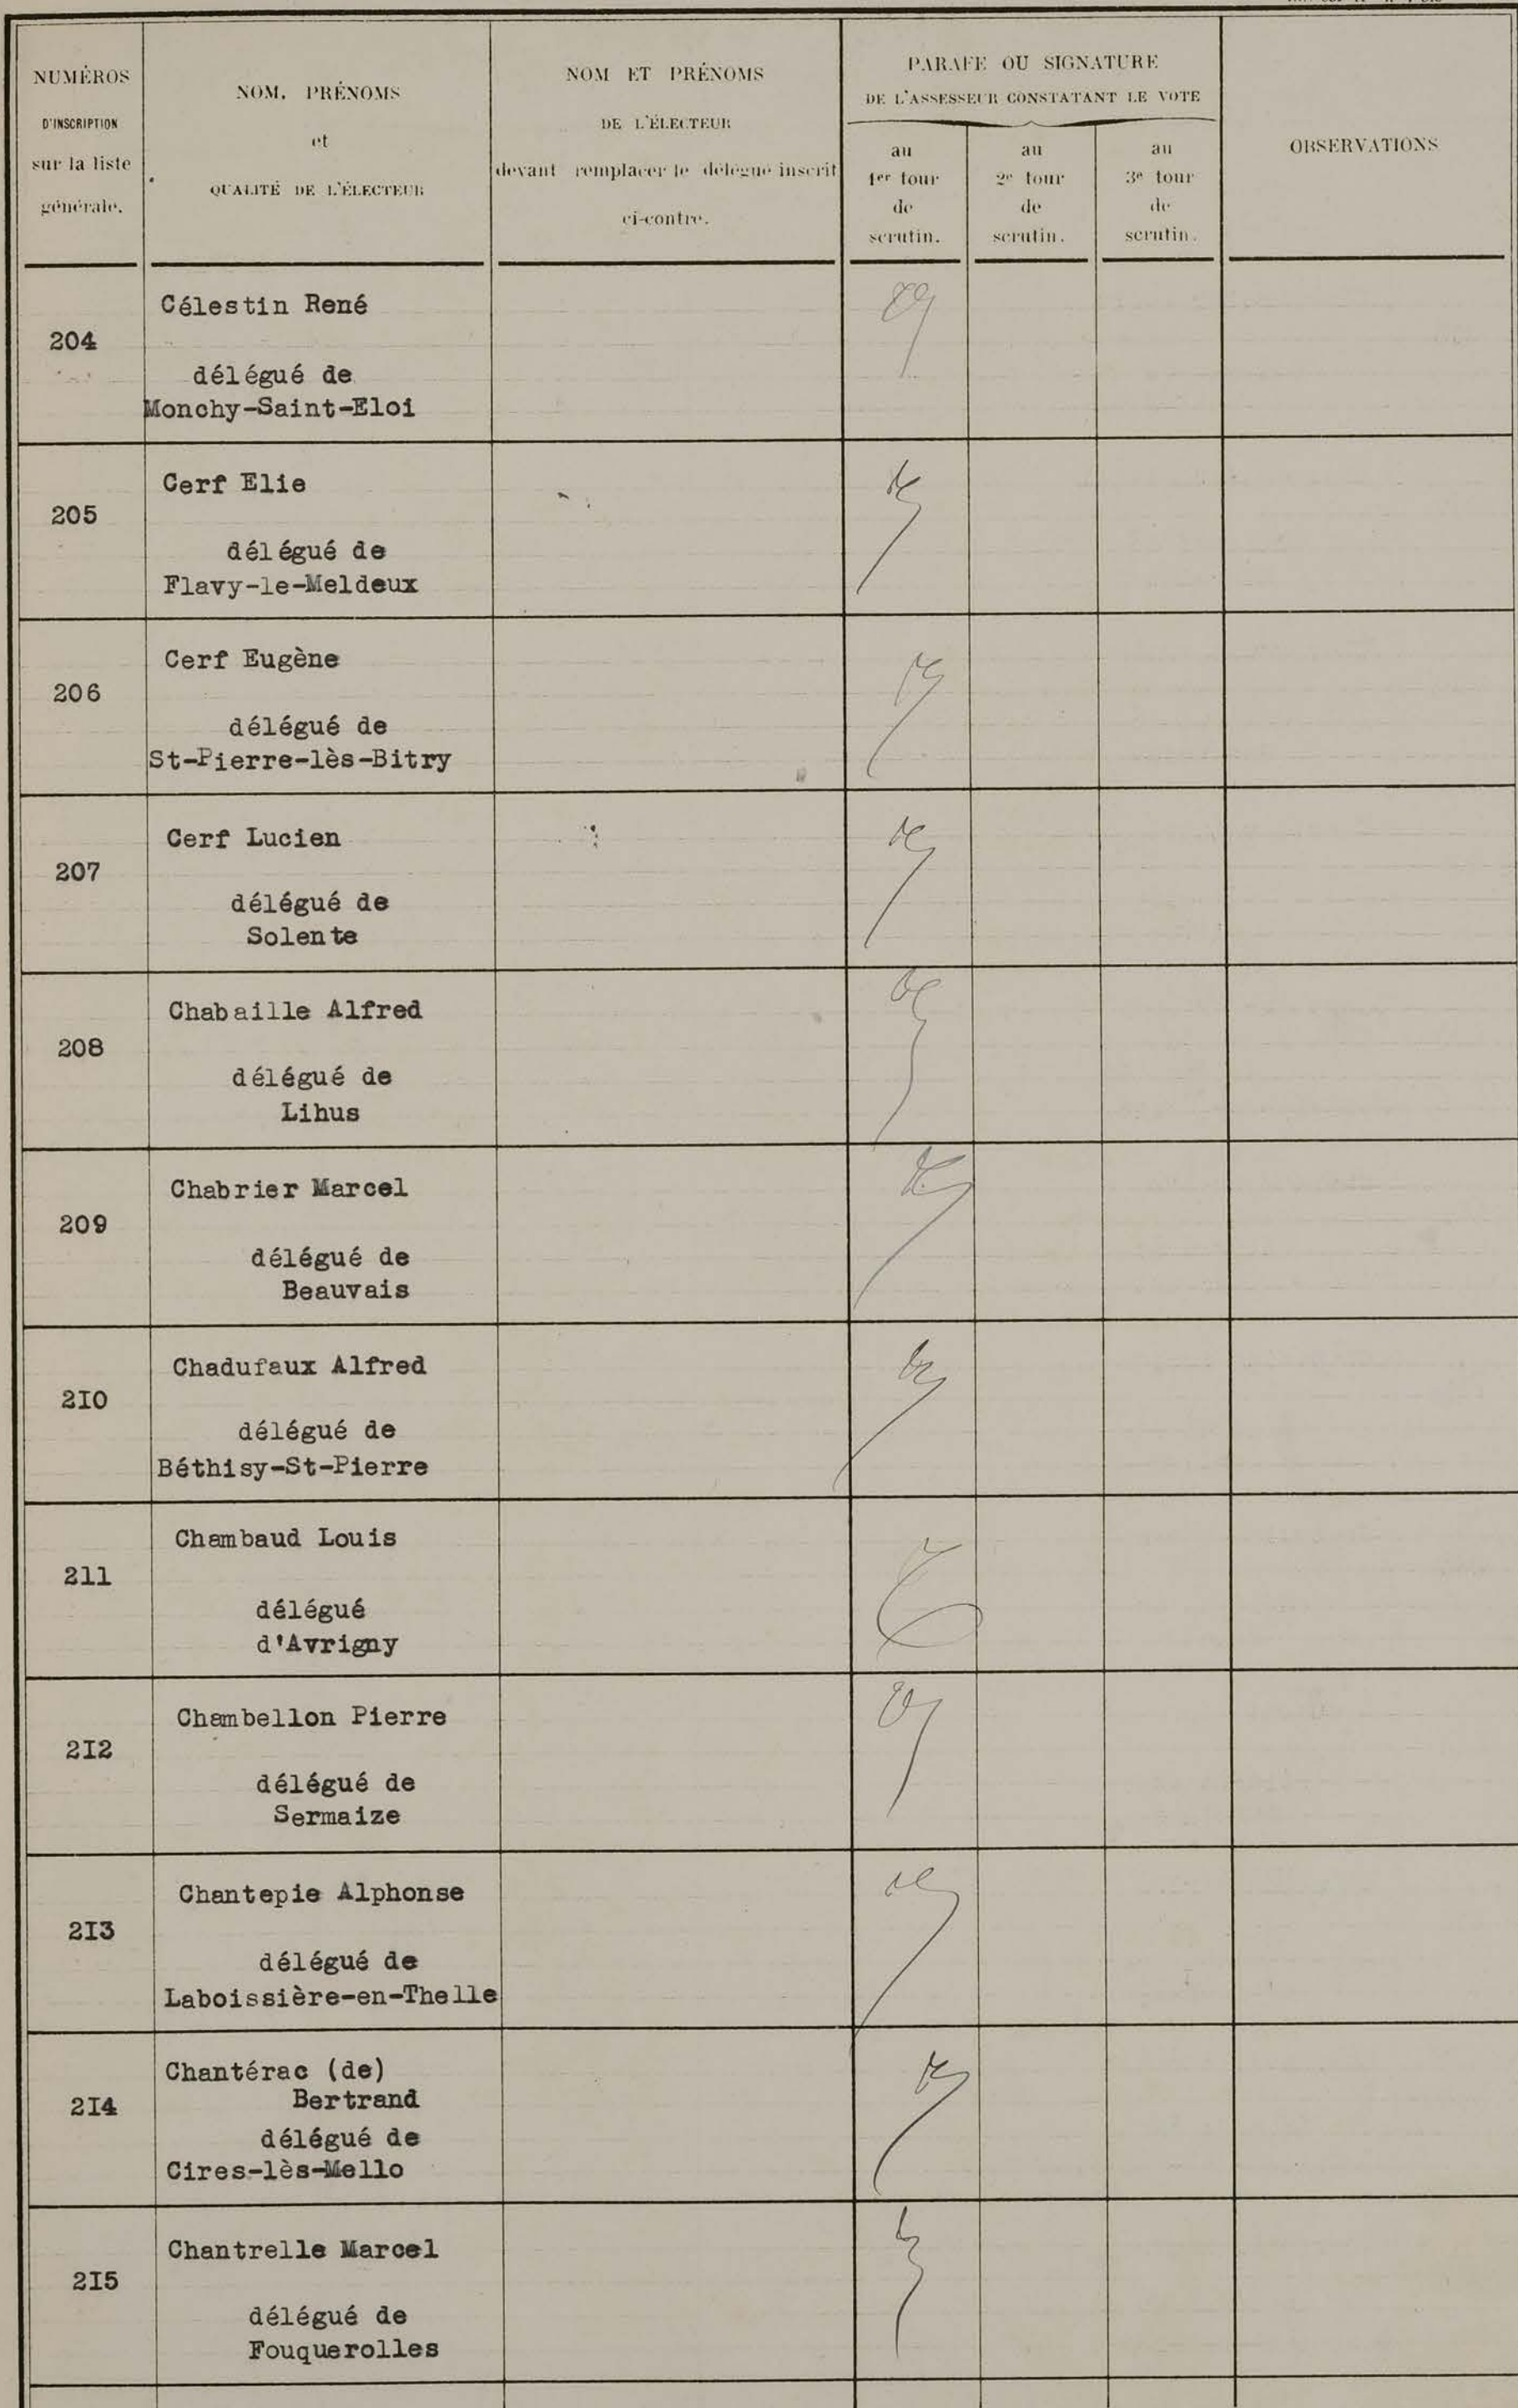 NUMÉROS
D'INSCRIPTION
sur la liste
générale.
NOM, PRÉNOMS
et
QUALITÉ DE L'ÉLECTEUR
NOM ET PRÉNOMS
DE L'ÉLECTEUR
devant remplacer le délégué inscrit
ci-contre.
PARAFE OU SIGNATURE
DE L'ASSESSEUR CONSTATANT LE VOTE
au
1er tour
de
scrutin.
au
2e tour
de
scrutin.
au
3e tour
de
scrutin.
OBSERVATIONS
204
Célestin René
délégué de
Monchy-Saint-Eloi
205
Cerf Elie
délégué de
Flavy-le-Meldeux
206
Cerf Eugène
délégué de
St-Pierre-lès-Bitry
207
Cerf Lucien
délégué de
Solente
208
Chabaille Alfred
délégué de
Lihus
209
Chabrier Marcel
délégué de
Beauvais
2I0
Chadufaux Alfred
délégué de
Béthisy-St-Pierre
211
Chambaud Louis
délégué
d'Avrigny
2I2
Chambellon Pierre
délégué de
Sermaize
2I3
Chantepie Alphonse
délégué de
Laboissière-en-Thelle
2I4
Chantérac (de)
Bertrand
délégué de
Cires-lès-Mello
2I5
Chantrelle Marcel
délégué de
Fouquerolles